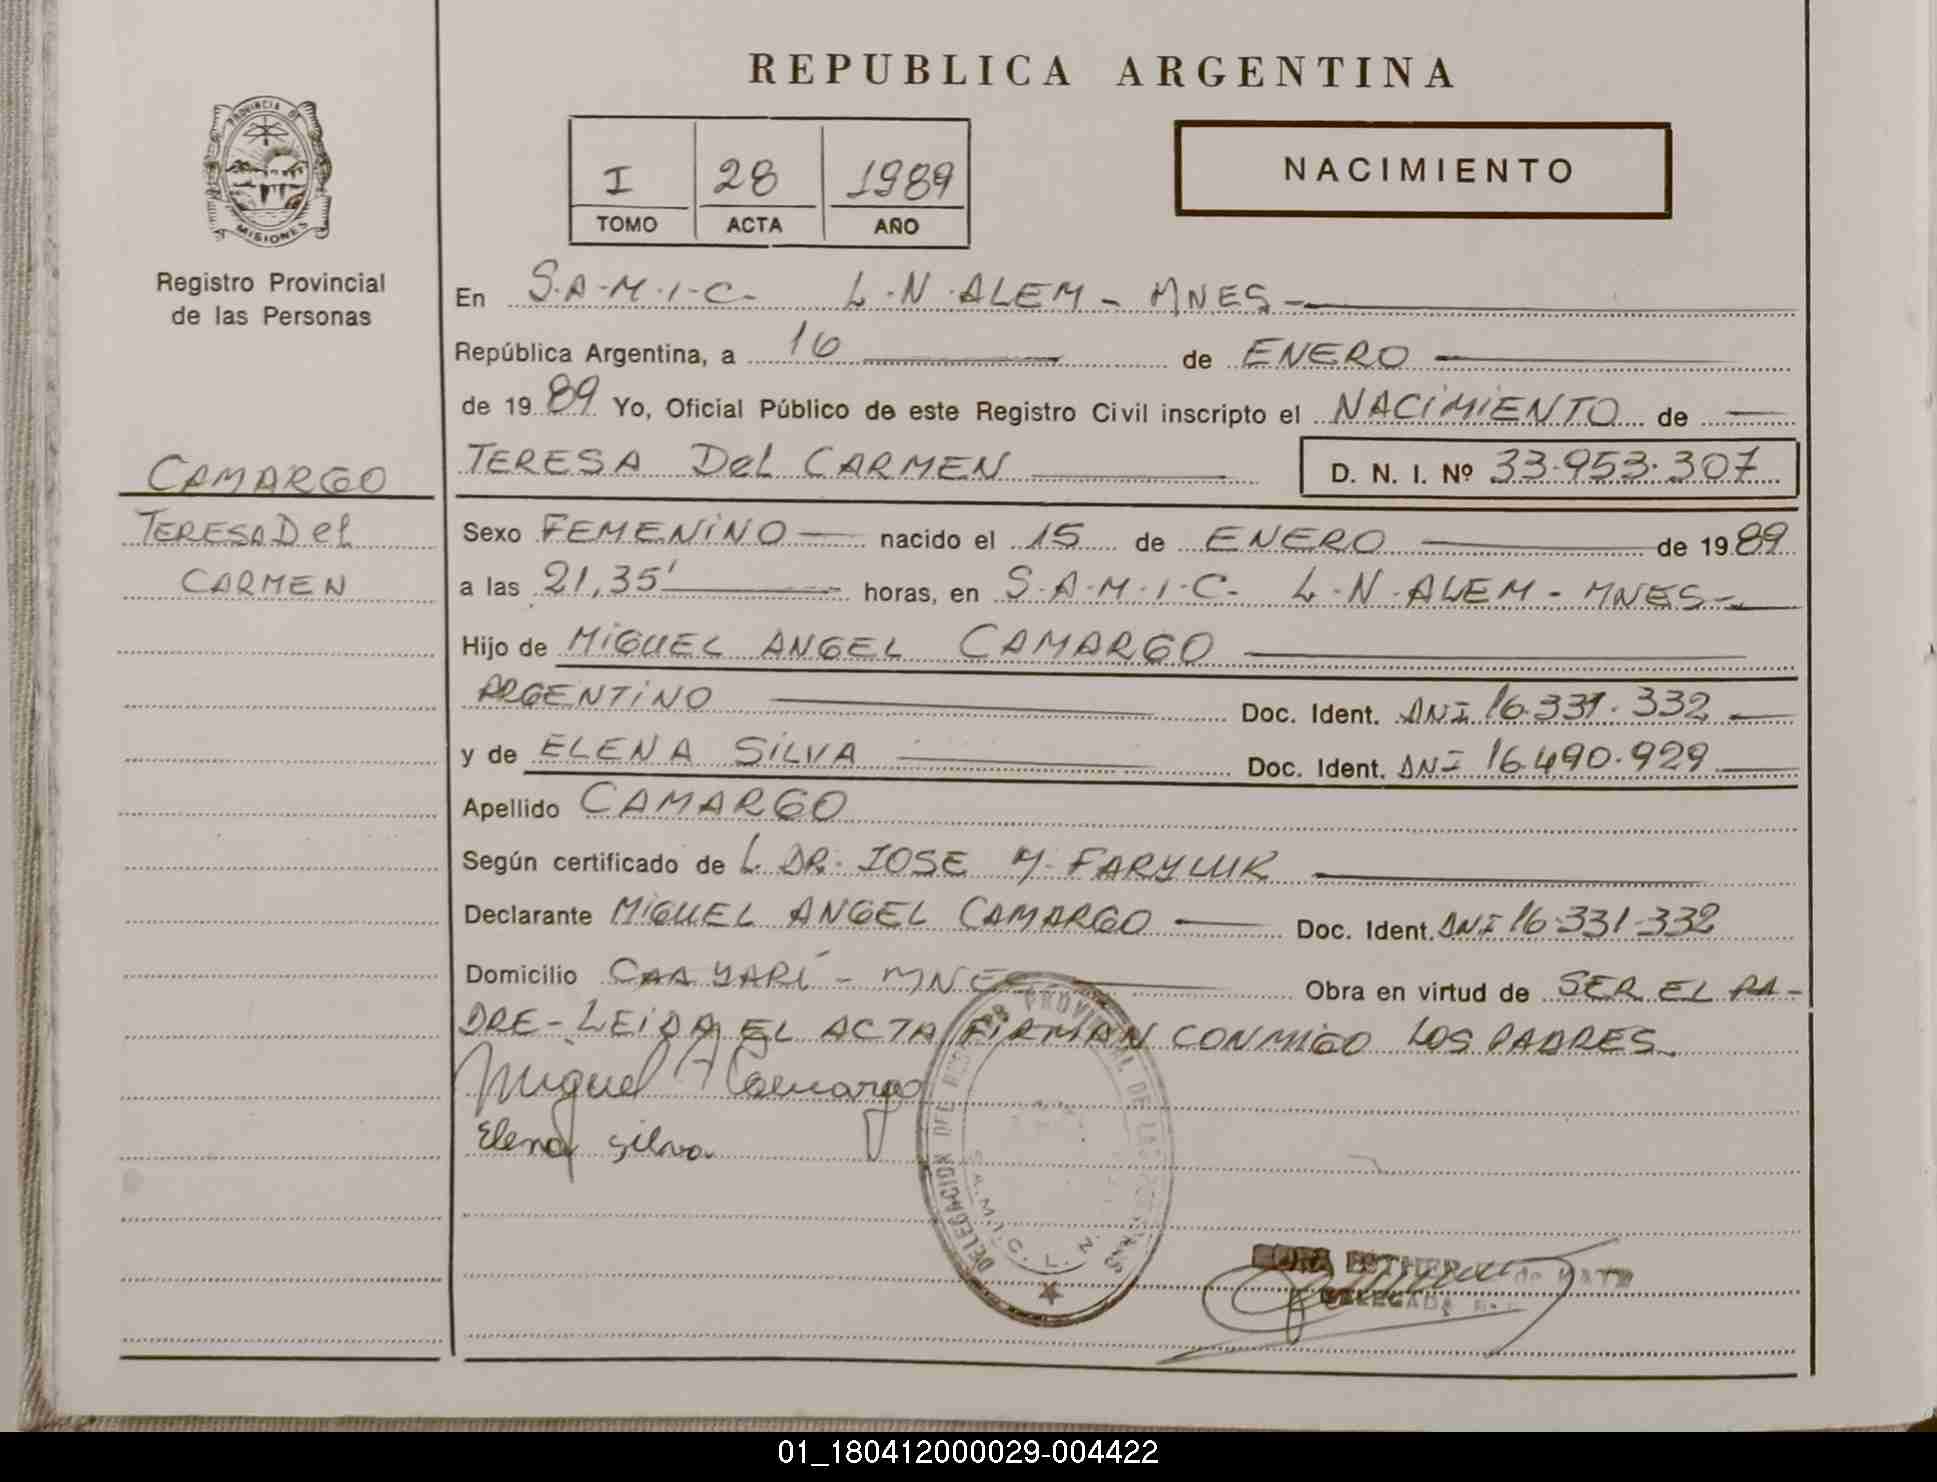 REPUBLICA ARGENTINA
PROVINCIA DE
MISIONES
Registro Provincial
de las Personas
I 28 1989
TOMO ACTA AÑO
NACIMIENTO
En S.A.M.I.C. L.N.ALEM - MNES -
República Argentina, a 16 de ENERO
de 1989 Yo, Oficial Público de este Registro Civil inscripto el NACIMIENTO de
TERESA Del CARMEN D. N. I. Nº 33.953.307
CAMARGO
TERESA Del
CARMEN
Sexo FEMENINO nacido el 15 de ENERO de 1989
a las 21,35' horas, en S.A.M.I.C. L.N.ALEM - MNES -
Hijo de MIGUEL ANGEL CAMARGO
ARGENTINO Doc. Ident. DNI 16.331.332
y de ELENA SILVA Doc. Ident. DNI 16.490.929
Apellido CAMARGO
Según certificado de L DR. JOSE M. FARYLUK
Declarante MIGUEL ANGEL CAMARGO Doc. Ident. DNI 16.331.332
Domicilio CAA YARÍ - MNES Obra en virtud de SER EL PA-
DRE - LEIDA EL ACTA FIRMAN CONMIGO LOS PADRES.
Miguel A Camargo
Elena Silva
DELEGACION DEL PROVINCIAL DE LAS PERSONAS
S.A.M.I.C. L. N.
ESTHER de
DELEGADA
01_180412000029-004422